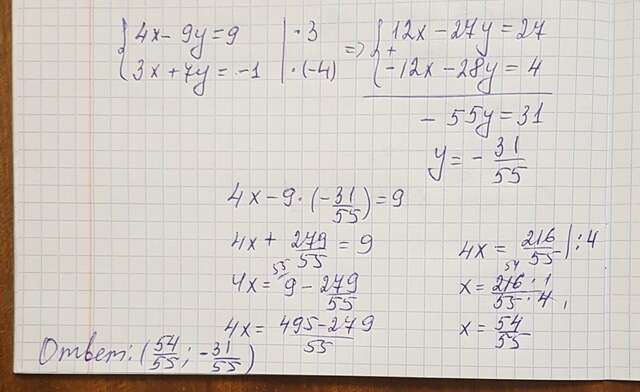 {4x - 9y = 9 | · 3
{3x + 7y = -1 | · (-4)
=> {12x - 27y = 27
+
{-12x - 28y = 4
- 55y = 31
y = - 31/55
4x - 9 · (-31/55) = 9
4x + 279/55 = 9
4x = 9 55 - 279/55
4x = 495-279/55
4x = 216/55 | : 4
x = 216 54 · 1/55 · 4,
x = 54/55
Ответ: (54/55; -31/55)